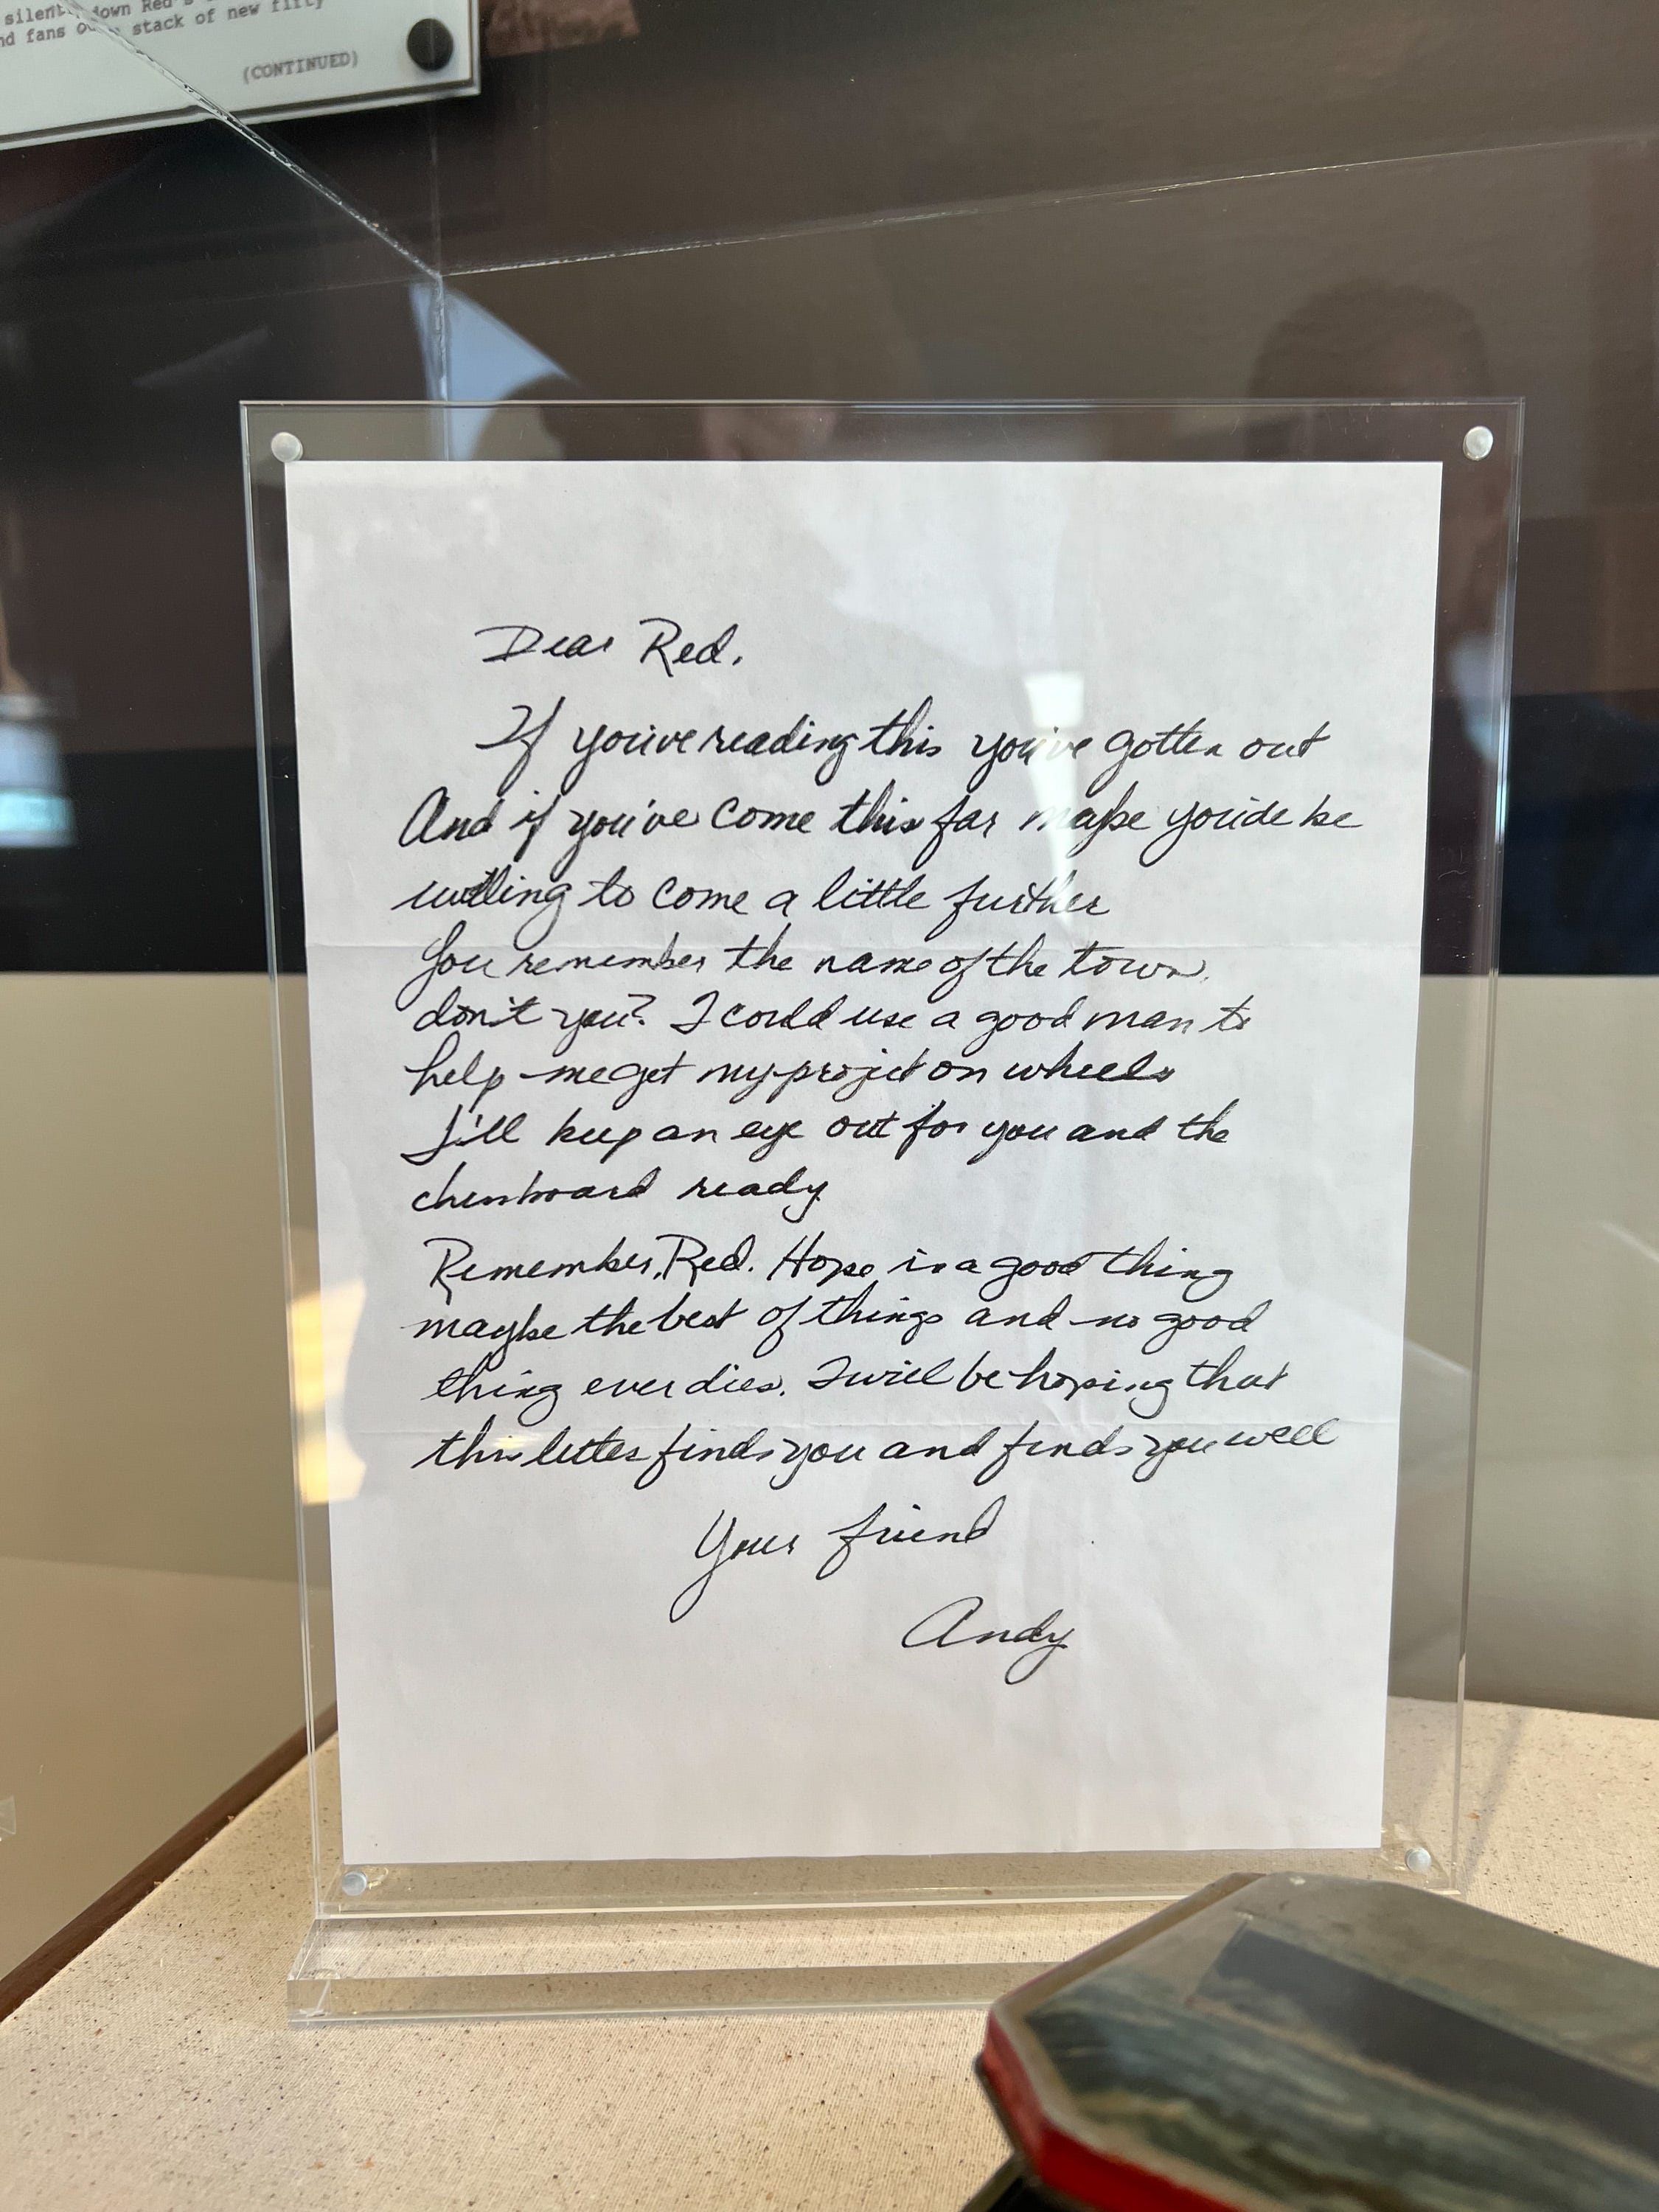 silently down Red's
nd fans out a stack of new fifty
(CONTINUED)
Dear Red.
If you've reading this you've gotten out
And if you've come this far maybe you'de be
willing to come a little further
You remember the name of the town,
don't you? I could use a good man to
help me get my project on wheels
I'll keep an eye out for you and the
chessboard ready
Remember, Red. Hope is a good thing
maybe the best of things and no good
thing ever dies. I will be hoping that
this letter finds you and finds you well
Your friend
Andy